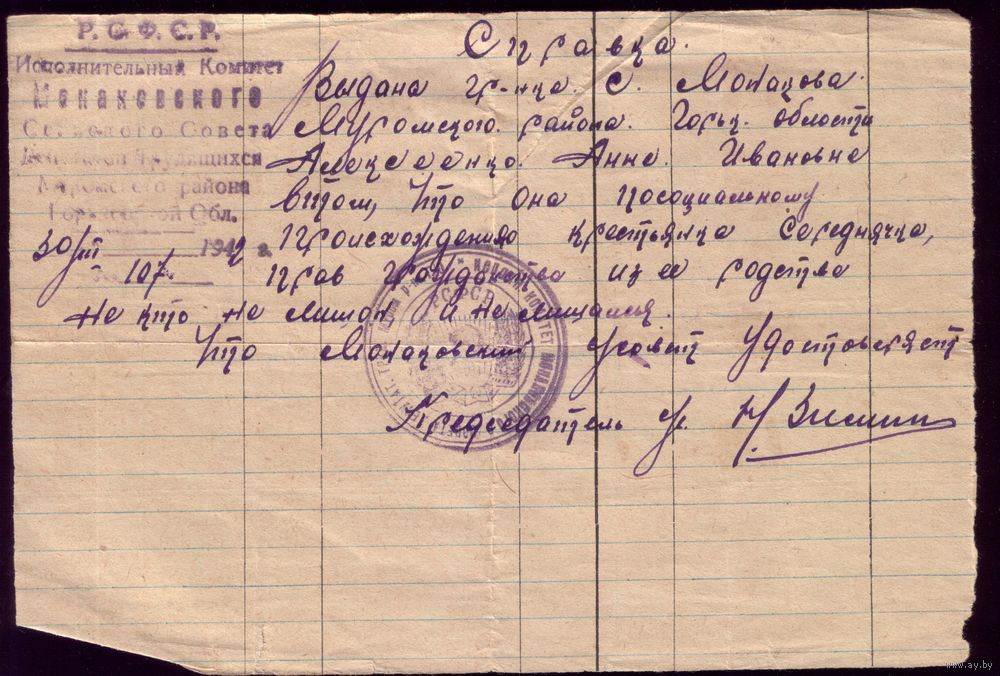 Р. С. Ф. С. Р.
Исполнительный Комитет
Монаковского
Сельского Совета
Депутатов Трудящихся
Муромского района
Горьковской Обл.
30/III 1942 г.
107.
Справка.
Выдана гр-нке. С. Монакова.
Муромского. района. Горьк. области
Алексеенко. Анне. Ивановне
втом, что она посоциальному
происхождению крестьянка середнячка,
прав гражданства из ее родства
не кто не лишон и не лишался.
Что Монаковский с/совет удостоверяет
Председатель
Н/Зимин
РСФСР
www.ay.by